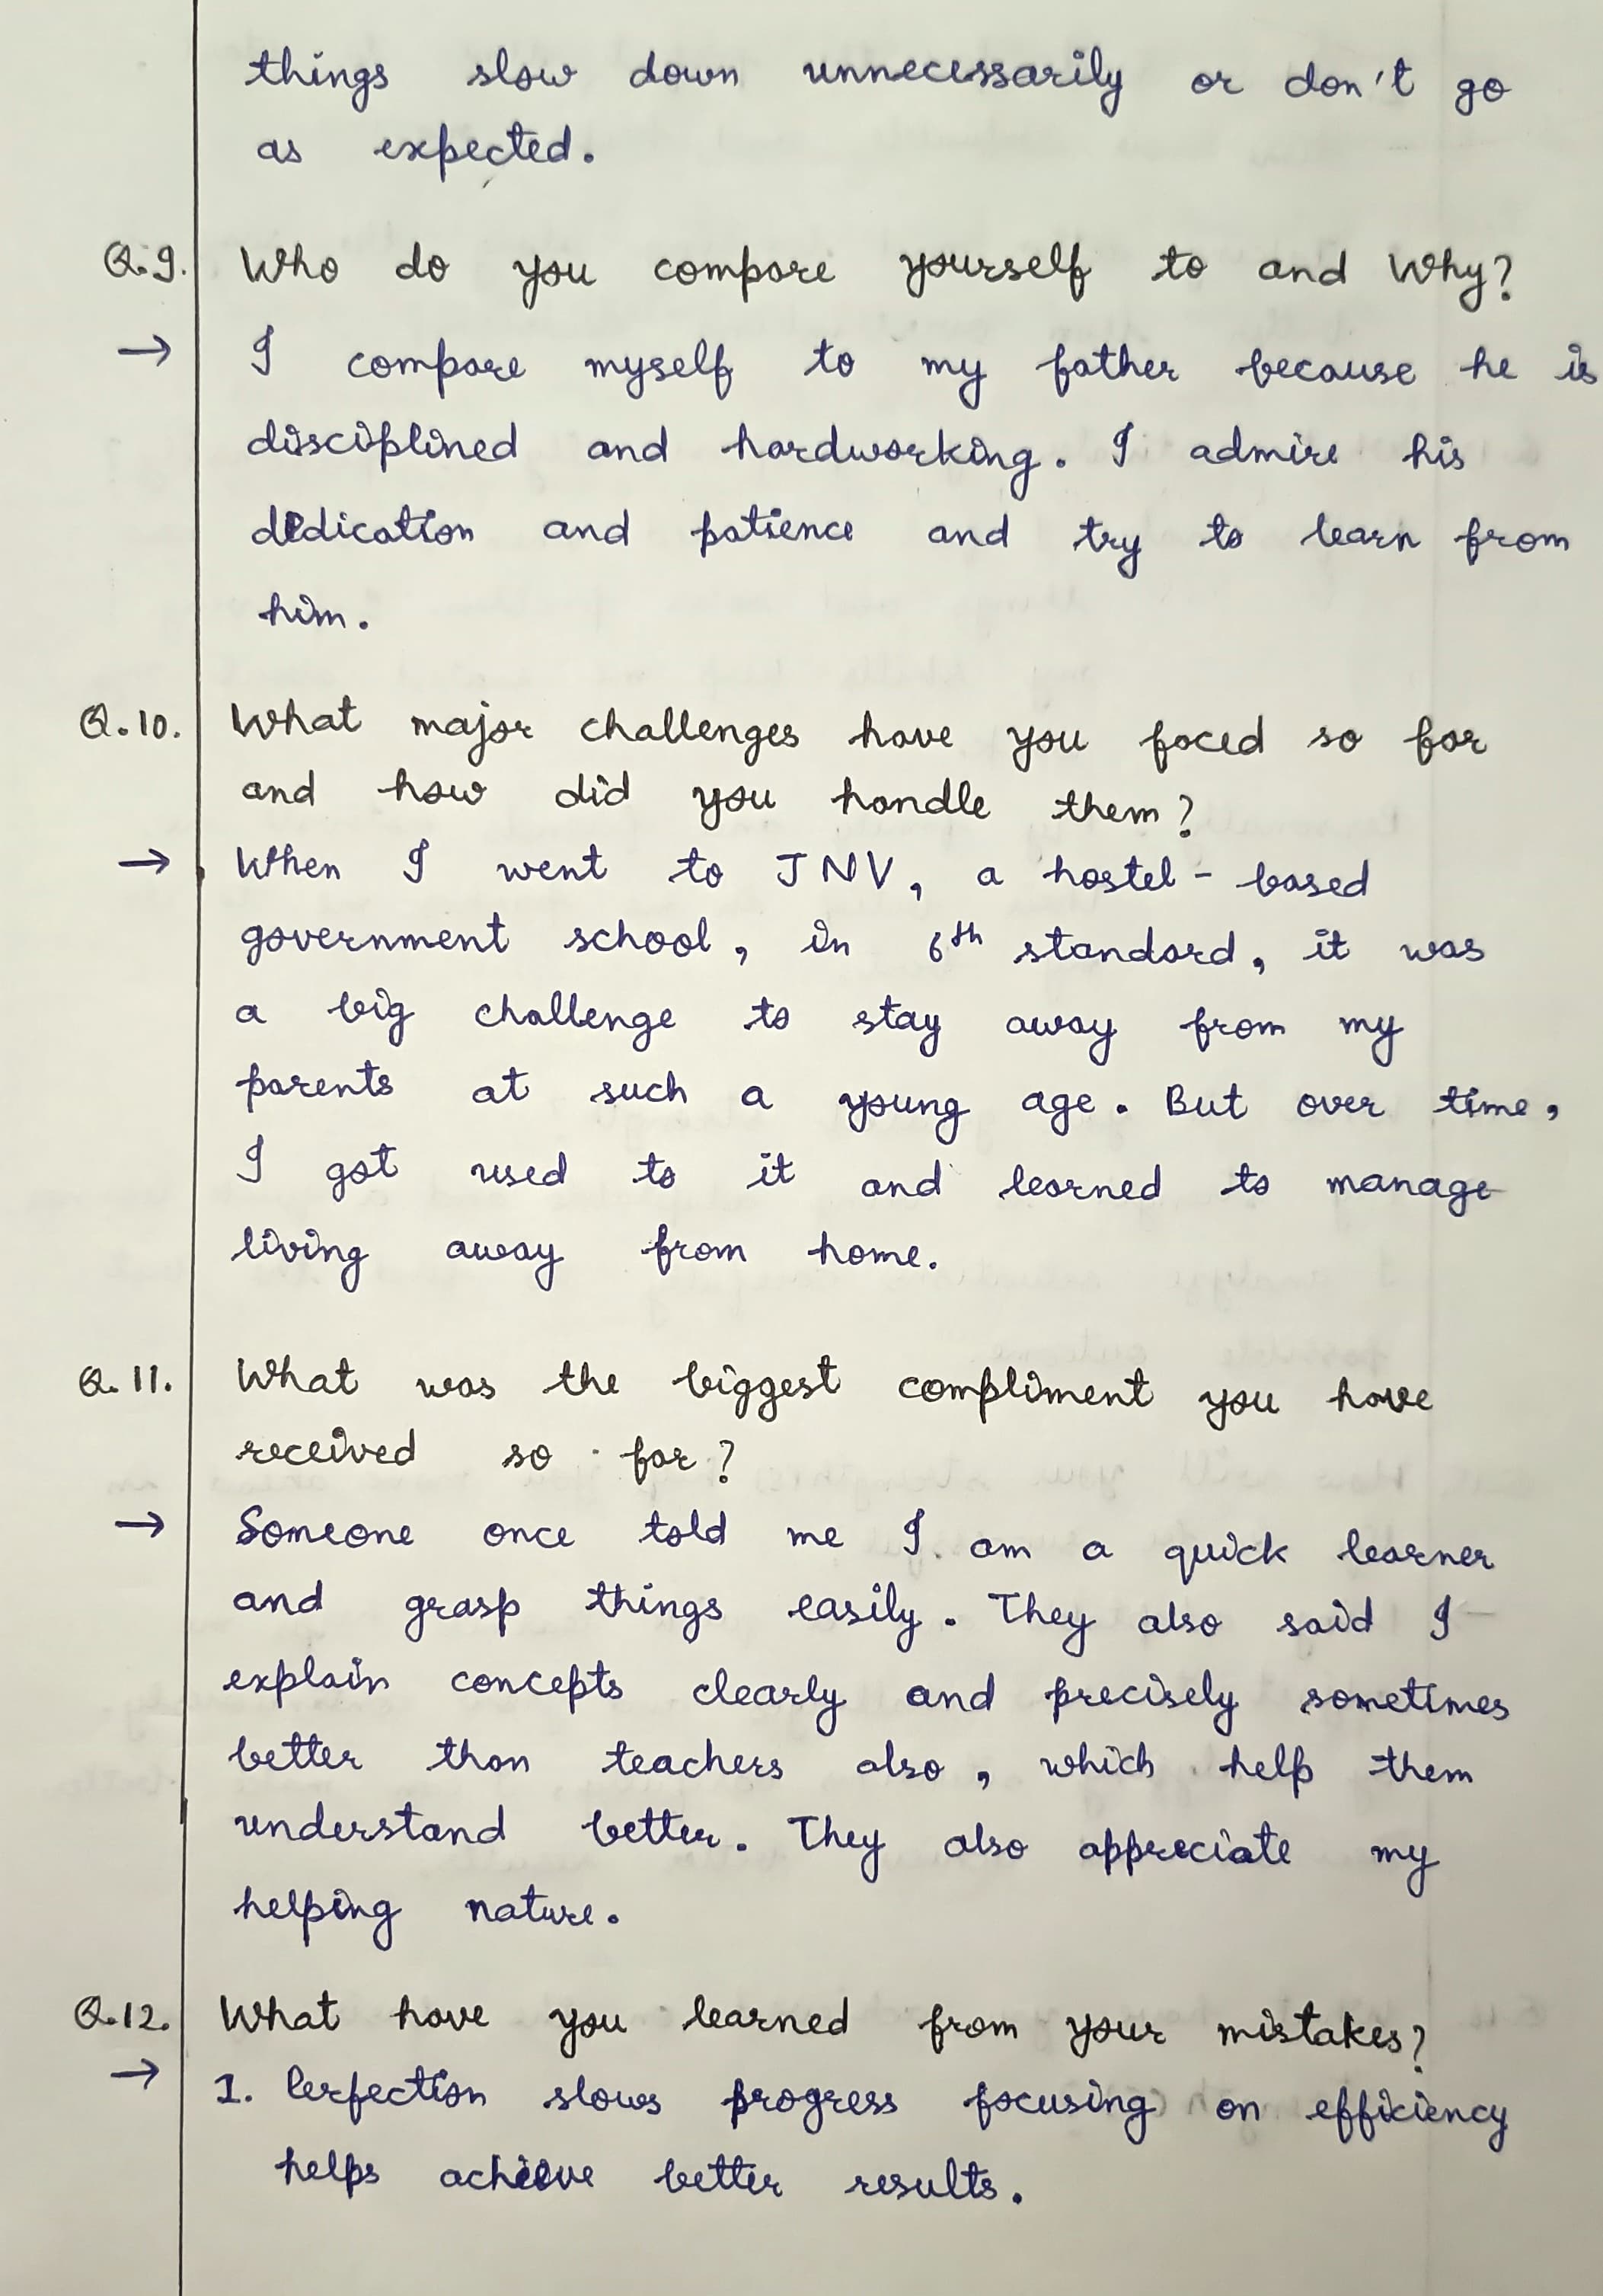 things slow down unnecessarily or don't go
as expected.
Q.9. Who do you compare yourself to and Why?
→ I compare myself to my father because he is
disciplined and hardworking. I admire his
dedication and patience and try to learn from
him.
Q.10. What major challenges have you faced so far
and how did you handle them?
→ When I went to JNV, a hostel-based
government school, in 6th standard, it was
a big challenge to stay away from my
parents at such a young age. But over time,
I got used to it and learned to manage
living away from home.
Q.11. What was the biggest compliment you have
received so far?
→ Someone once told me I am a quick learner
and grasp things easily. They also said I
explain concepts clearly and precisely sometimes
better than teachers also, which help them
understand better. They also appreciate my
helping nature.
Q.12. What have you learned from your mistakes?
→ 1. Perfection slows progress focusing on efficiency
helps achieve better results.